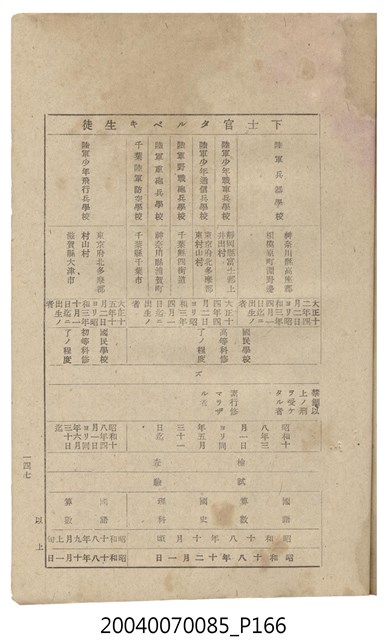 下士官タルベキ生徒
陸軍兵器學校
神奈川縣高座郡
相模原町淵野邊
陸軍少年戰車兵學校
靜岡縣富士郡上
井出村
陸軍少年通信兵學校
東京府北多摩郡
東村山村
陸軍野戰砲兵學校
千葉縣四街道
陸軍重砲兵學校
神奈川縣浦賀町
千葉陸軍防空學校
千葉縣千葉市
陸軍少年飛行兵學校
東京府北多摩郡
村山村
滋賀縣大津市
大正十
二年四
月二日
ヨリ昭
和三年
四月一
日迄ニ
出生ノ
者
大正十
四年四
月二日
ヨリ昭
和三年
四月一
日迄ニ
出生ノ
者
大正十
五年十
月二日
ヨリ昭
和三年
十月一
日迄ニ
出生ノ
者
國民學校
高等科修
了ノ程度
國民學校
初等科修
了ノ程度
ズ
禁錮以
上ノ刑
ヲ受ケ
タル者
素行修
マラザ
ル者
昭和十
八年三
月一日
ヨリ同
年五月
三十一
日迄
昭和十
八年四
月一日
ヨリ同
年六月
三十日
迄
檢
查
試
驗
國語
算數
國史
理科
國語
算數
昭和十八年十月頃
昭和十八年九月上旬
昭和十八年十二月一日
昭和十八年十月一日
以上
一四七
20040070085_P166